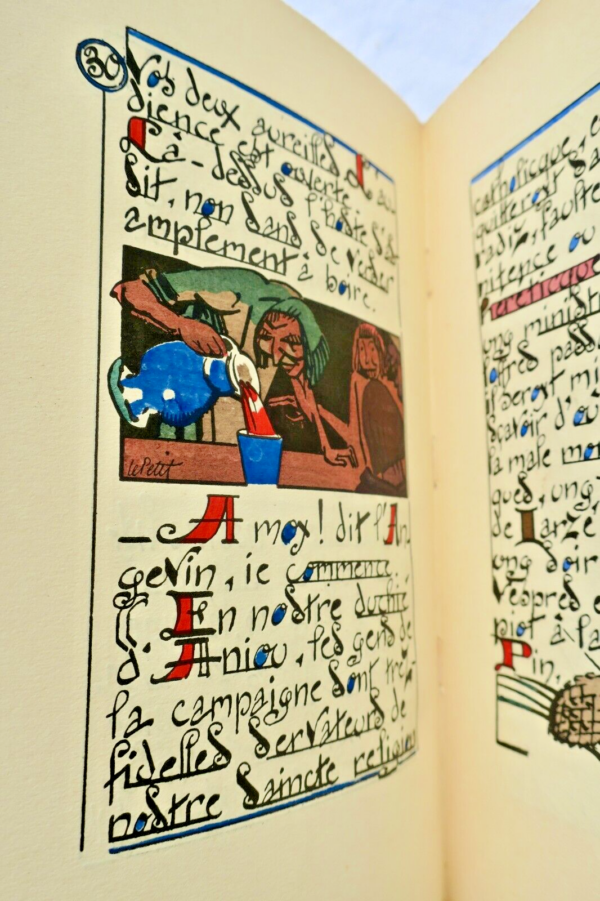 30
Vos deux aureilles. L'au
dience est ouverte.
Là-dessus l'hoste s'as
sit, non sans se verser
amplement à boire.
lePetit
— A moy! dit l'An
gevin, ie commence.
En nostre duché
d'Aniou, les gens de
la campaigne sont très-
fidelles servateurs de
nostre saincte religion
catholicque, e
quitteront
radiz, faultre
nitence ou
hereticque
ung ministre
il seront mi
sçavoir d'ou
la male mo
ques, ung
de Iarzé
ung soir
vespres e
piot à la
Pin,